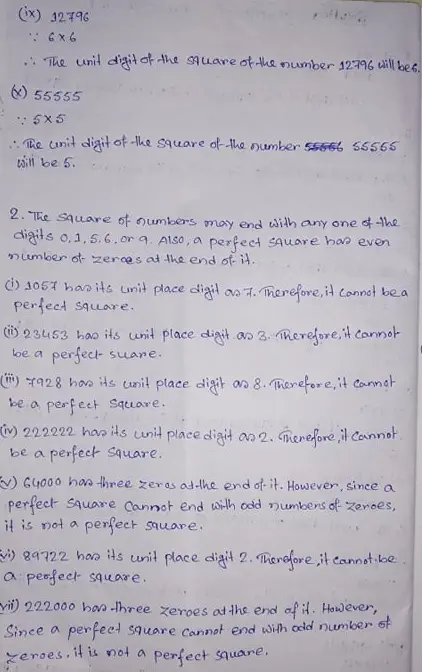 (ix) 12796
∵ 6×6
∴ The unit digit of the square of the number 12796 will be 6.
(x) 55555
∵ 5×5
∴ The unit digit of the square of the number 55556 55555
will be 5.
2. The square of numbers may end with any one of the
digits 0, 1, 5, 6, or 9. Also, a perfect square has even
number of zeroes at the end of it.
(i) 1057 has its unit place digit as 7. Therefore, it cannot be a
perfect square.
(ii) 23453 has its unit place digit as 3. Therefore, it cannot
be a perfect suare.
(iii) 7928 has its unit place digit as 8. Therefore, it cannot
be a perfect square.
(iv) 222222 has its unit place digit as 2. Therefore, it cannot
be a perfect square.
(v) 64000 has three zeros at the end of it. However, since a
perfect square cannot end with odd numbers of zeroes,
it is not a perfect square.
(vi) 89722 has its unit place digit 2. Therefore, it cannot be
a perfect square.
(vii) 222000 has three zeroes at the end of it. However,
Since a perfect square cannot end with odd number of
zeroes. it is not a perfect square.